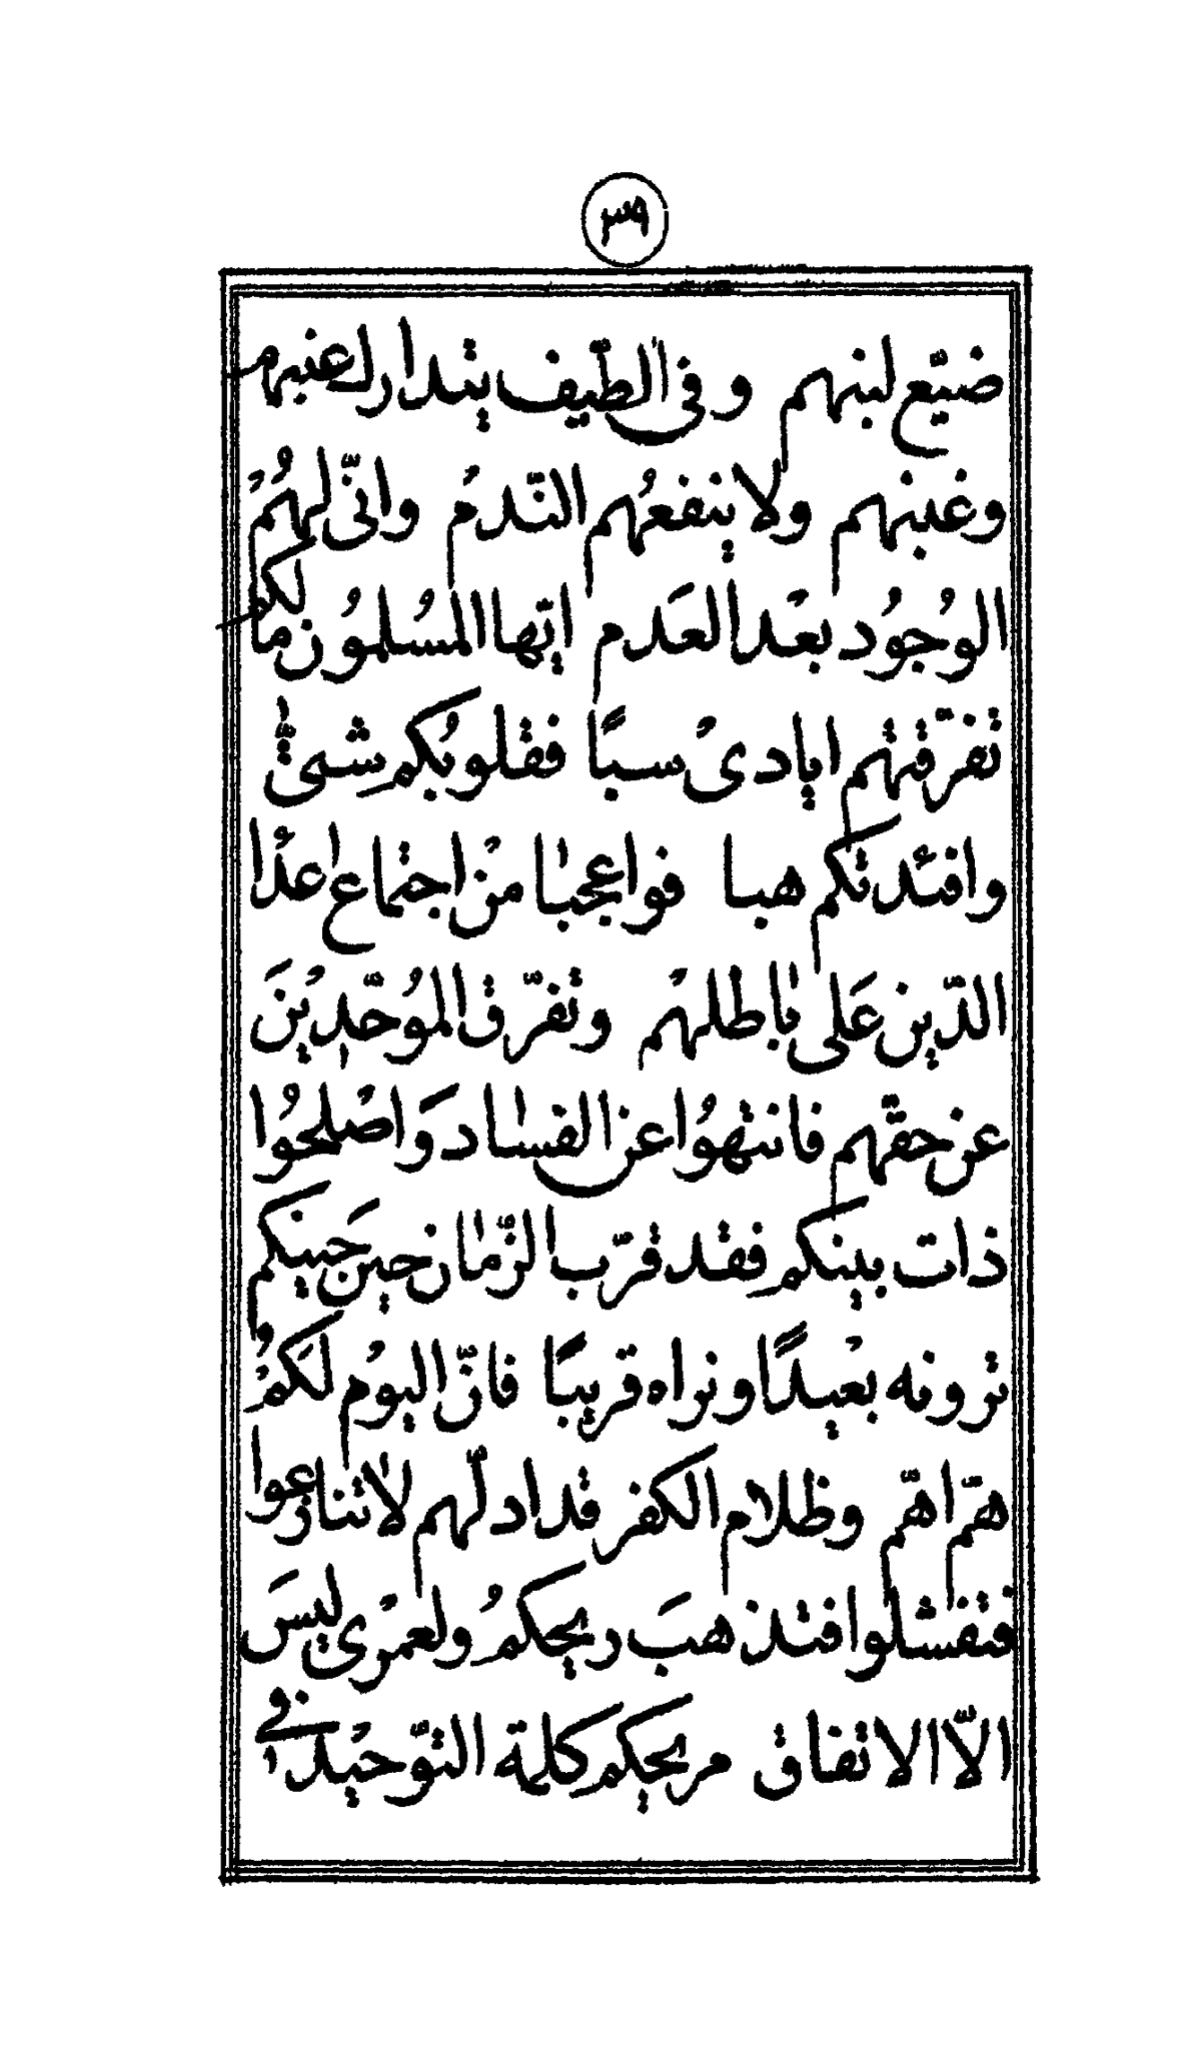 ٣٩
ضيّع لبنهم وفى الطّيف يتدارك عنبهم
وغبنهم ولا ينفعهم النّدم وانّى لهُمُ
الوُجُود بعْد العَدم ايّها المسُلموُن ما لكم
تفرّقتهم ايادىْ سبًا فقلوبُكم شتّىٰ
وافئدتكم هبا فواعجبٰا منْ اجتماع اعدْا
الدّين عَلى بٰاطلهْم وتفرّق الموُحّدِيْنَ
عن حقّهم فانتهوُا عن الفسٰاد وَاصْلحُوا
ذات بينكم فقد قرّب الزّمٰان حين حَينكم
ترونه بعْيدًا ونراه قريبًا فانّ اليوْم لَكمُْ
همّ اهمّ وظلاٰم الكفر قد ادلّهم لاٰ تنازعوا
فتفشلوا فتذهبَ ريحكمُْ ولعمْرى ليسَ
الاّ الاتفاق مريحكم كلمة التوّحيْد فى